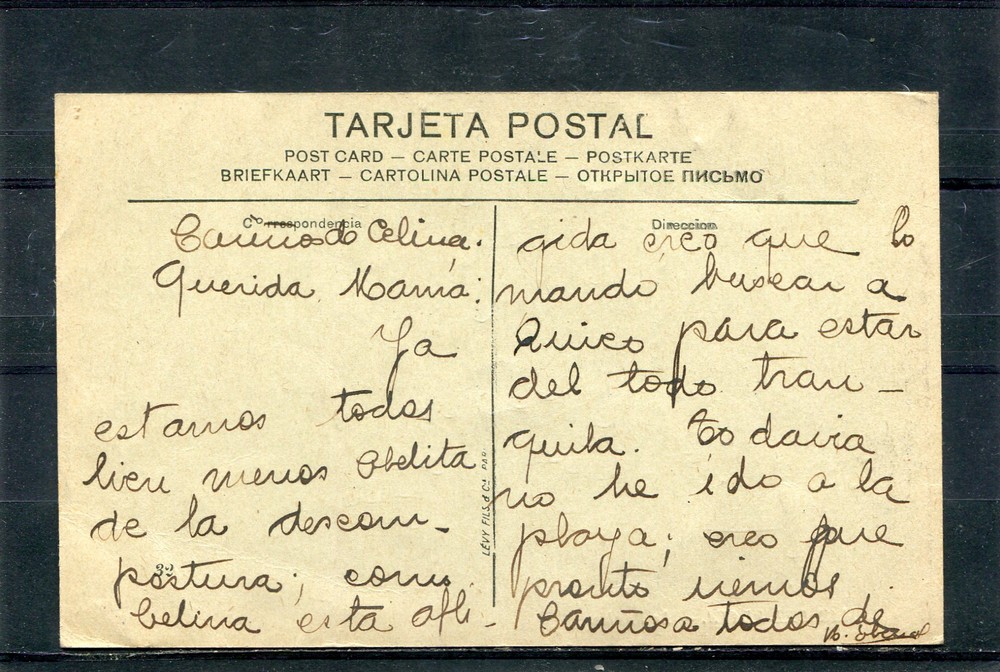 TARJETA POSTAL
POST CARD — CARTE POSTALE — POSTKARTE
BRIEFKAART — CARTOLINA POSTALE — ОТКРЫТОЕ ПИСЬМО
Correspondencia
Cariños de Celina.
Querida Mamá:
Ya
estamos todos
bien menos Abelita
de la descom-
postura; como
Celina esta afli-
32
LÉVY FILS & Cie PAR.
Direccion
gida creo que lo
mando buscar a
Quico para estar
del todo tran-
quila. Todavia
no he ido a la
playa; creo que
pronto iremos
Cariños a todos de